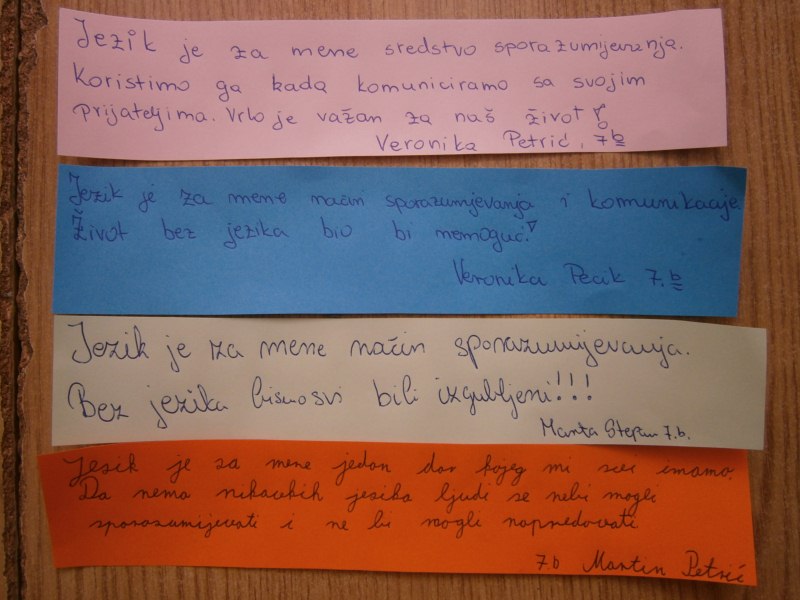 Jezik je za mene sredstvo sporazumijevanja.
Koristimo ga kada komuniciramo sa svojim
prijateljima. Vrlo je važan za naš život!
Veronika Petrić, 7.b
Jezik je za mene način sporazumjevanja i komunikacije.
Život bez jezika bio bi nemoguć!
Veronika Pecik 7.b
Jezik je za mene način sporazumijevanja.
Bez jezika bismo svi bili izgubljeni!!!
Marta Stepan 7.b.
Jezik je za mene jedan dar kojeg mi svi imamo.
Da nema nikakvih jezika ljudi se nebi mogli
sporazumijevati i ne bi mogli napredovati
7.b Martin Petrić